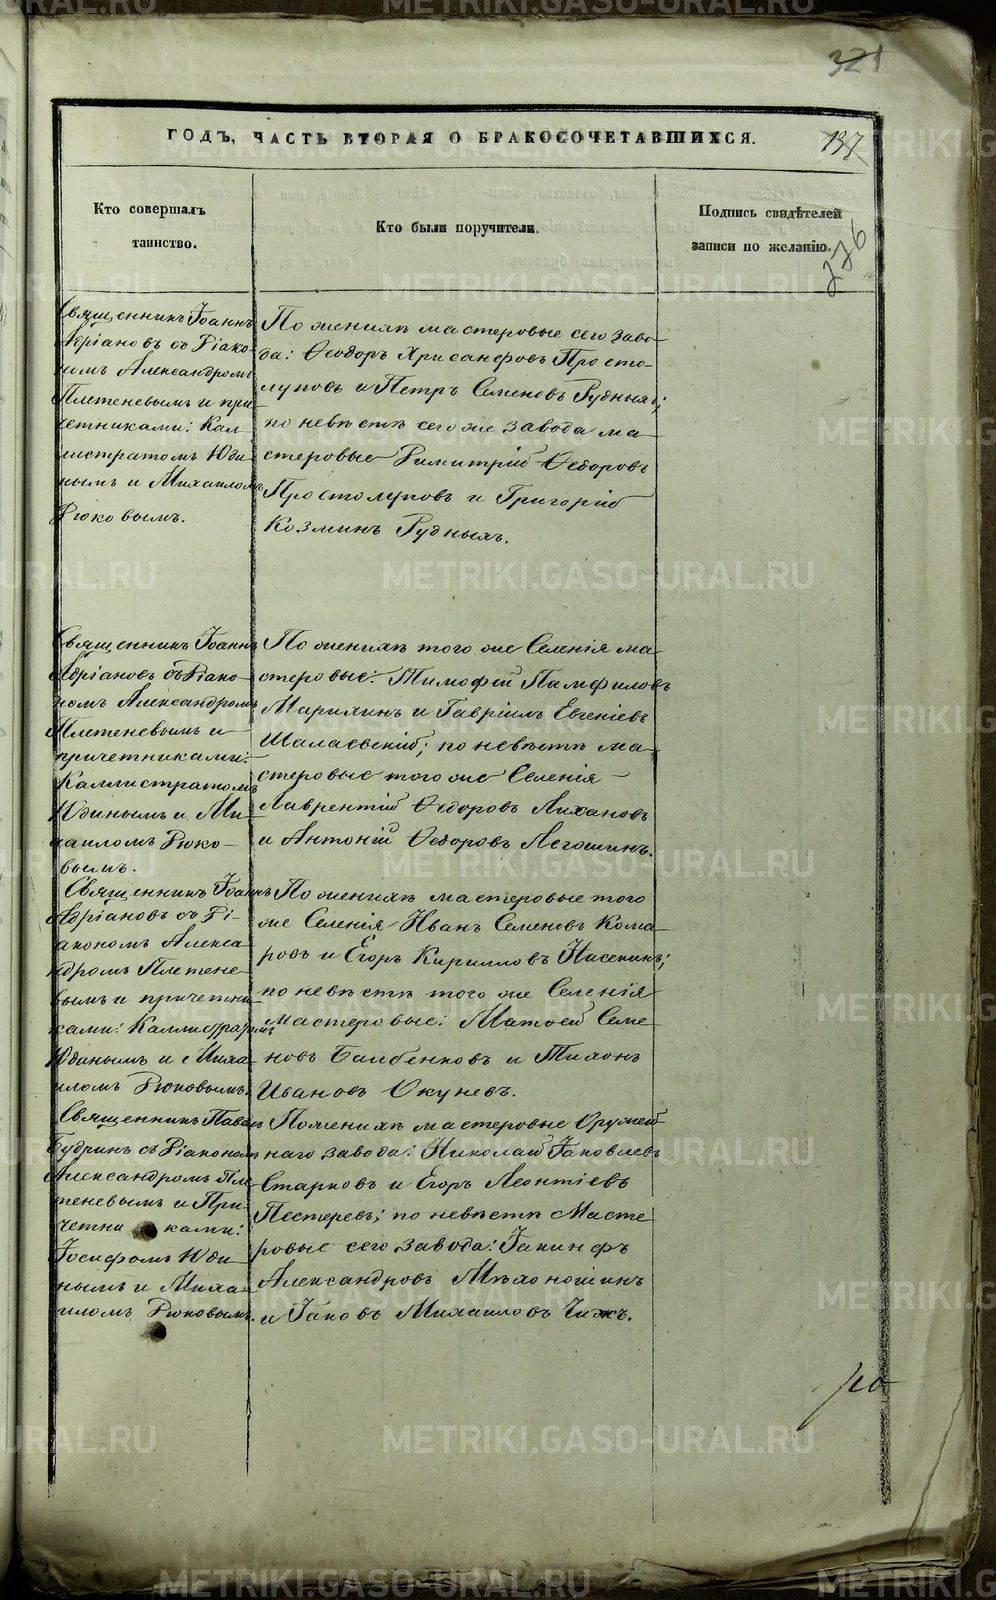 321
ГОДЪ, ЧАСТЬ ВТОРАЯ О БРАКОСОЧЕТАВШИХСЯ.
137
Кто совершалъ
таинство.
Кто были поручители.
Подпись свидѣтелей
записи по желанію.
276
Священникъ Іоаннъ
Адріановъ съ Діако-
номъ Александромъ
Плетеневымъ и при
четниками: Кал
листратомъ Юди
нымъ и Михаиломъ
Рюковымъ.
По женихѣ мастеровые сего заво-
да: Ѳеодоръ Хрисанфовъ Просто-
луповъ и Петръ Семеновъ Рудныхъ;
по невѣстѣ сего же завода ма-
стеровые Димитрій Ѳедоровъ
Простолуповъ и Григорій
Козминъ Рудныхъ.
Священникъ Іоаннъ
Адріановъ съ Діако-
номъ Александромъ
Плетеневымъ и
причетниками:
Каллистратомъ
Юдинымъ и Ми-
хаиломъ Рюко-
вымъ.
По женихѣ того же Селенія ма-
стеровые: Тимофей Памфиловъ
Марихинъ и Гавріилъ Евгеніевъ
Шалаевскій; по невѣстѣ ма-
стеровые того же Селенія
Лаврентій Ѳедоровъ Лихановъ
и Антоній Ѳедоровъ Легошинъ.
Священникъ Іоаннъ
Адріановъ съ Ді-
акономъ Алекса-
ндромъ Плетене-
вымъ и причетни-
ками: Каллистратомъ
Юдинымъ и Миха-
иломъ Рюковымъ.
По женихѣ мастеровые того
же Селенія Иванъ Семеновъ Кома-
ровъ и Егоръ Кирилловъ Нисенинъ;
по невѣстѣ того же Селенія
мастеровые: Матвей Семе-
новъ Балбенковъ и Тихонъ
Ивановъ Окуневъ.
Священникъ Павелъ
Будринъ съ Діакономъ
Александромъ Пле
теневымъ и При-
четни ками:
Іосифомъ Юди
нымъ и Миха-
иломъ Рюковымъ.
По женихѣ мастеровые Оружей
наго завода: Николай Іаковлевъ
Старковъ и Егоръ Леонтіевъ
Пестеревъ; по невѣстѣ Масте
ровые сего завода: Іакинфъ
Александровъ Мѣхоношинъ
и Іаковъ Михаиловъ Чижъ.
METRIKI.GASO-URAL.RU